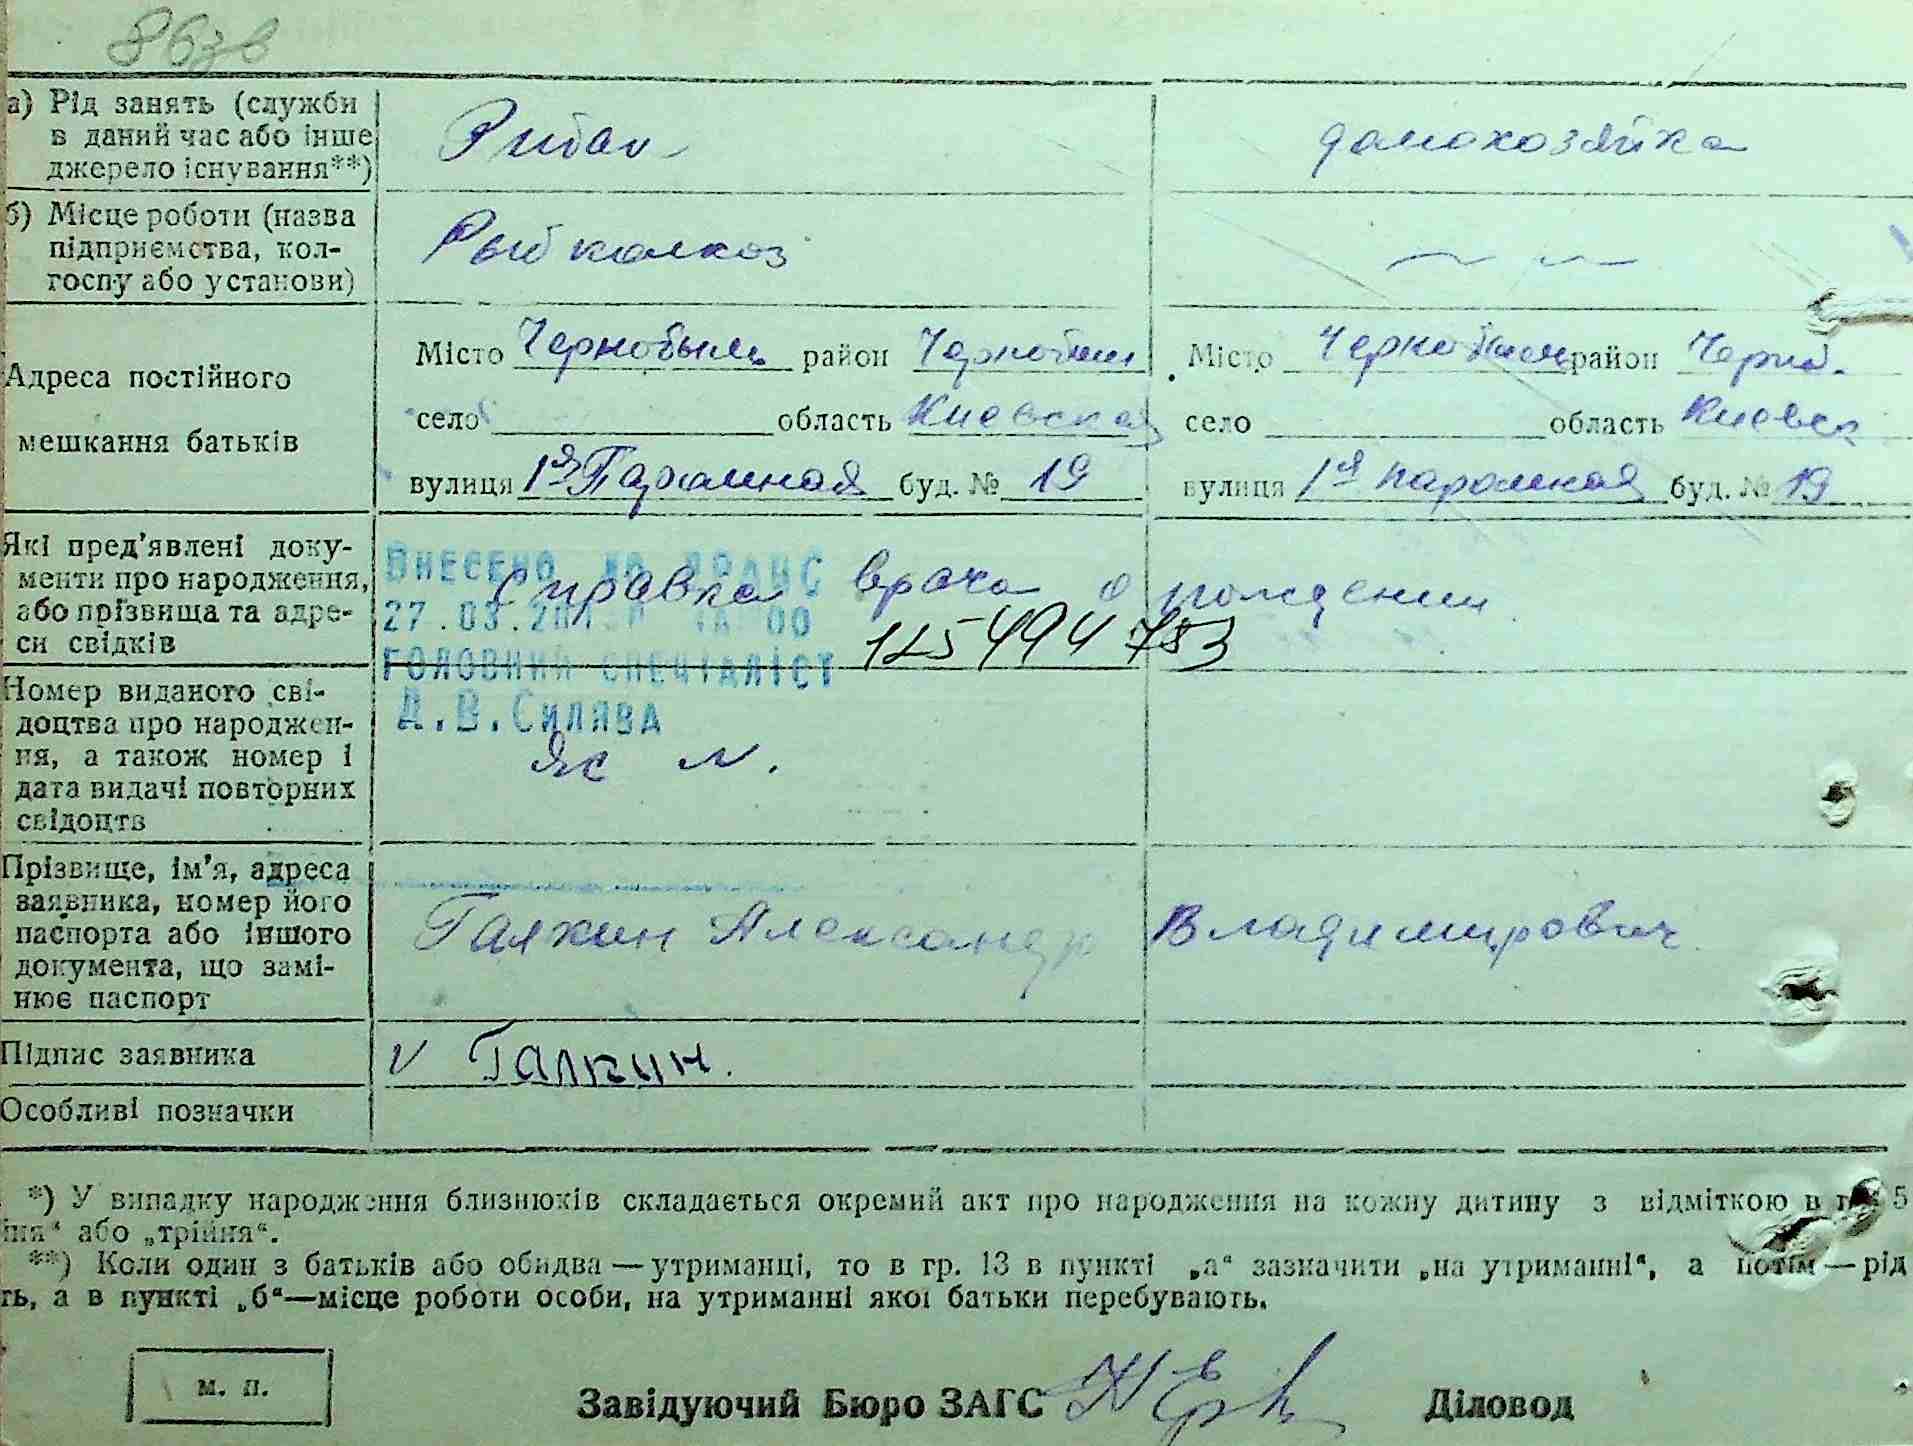 а) Рід занять (служби
в даний час або інше
джерело існування**)
Рибак
домохозяйка
б) Місце роботи (назва
підприємства, кол-
госпу або установи)
Рыбколхоз
Адреса постійного
мешкання батьків
Місто Чернобыль район Чернобыл
село область Киевская
вулиця 1я Паромная буд. № 19
Місто Чернобыль район Черноб.
село область Киевск
вулиця 1я паромная буд. № 19
Які пред'явлені доку-
менти про народження,
або прізвища та адре-
си свідків
Справка врача о рождении
125494753
Внесено до ДРАЦС
27.03.20
Головний спеціаліст
Д.В.Силява
Номер виданого сві-
доцтва про народжен-
ня, а також номер і
дата видачі повторних
свідоцтв
Прізвище, ім'я, адреса
заявника, номер його
паспорта або іншого
документа, що замі-
нює паспорт
Галкин Александр Владимирович
Підпис заявника
v Галкин.
Особливі позначки
*) У випадку народження близнюків складається окремий акт про народження на кожну дитину з відміткою в гр. 5
ійня“ або „трійня“.
**) Коли один з батьків або обидва — утриманці, то в гр. 13 в пункті „а“ зазначити „на утриманні“, а потім — рід
ть, а в пункті „б“—місце роботи особи, на утриманні якої батьки перебувають.
м. п.
Завідуючий Бюро ЗАГС
Діловод